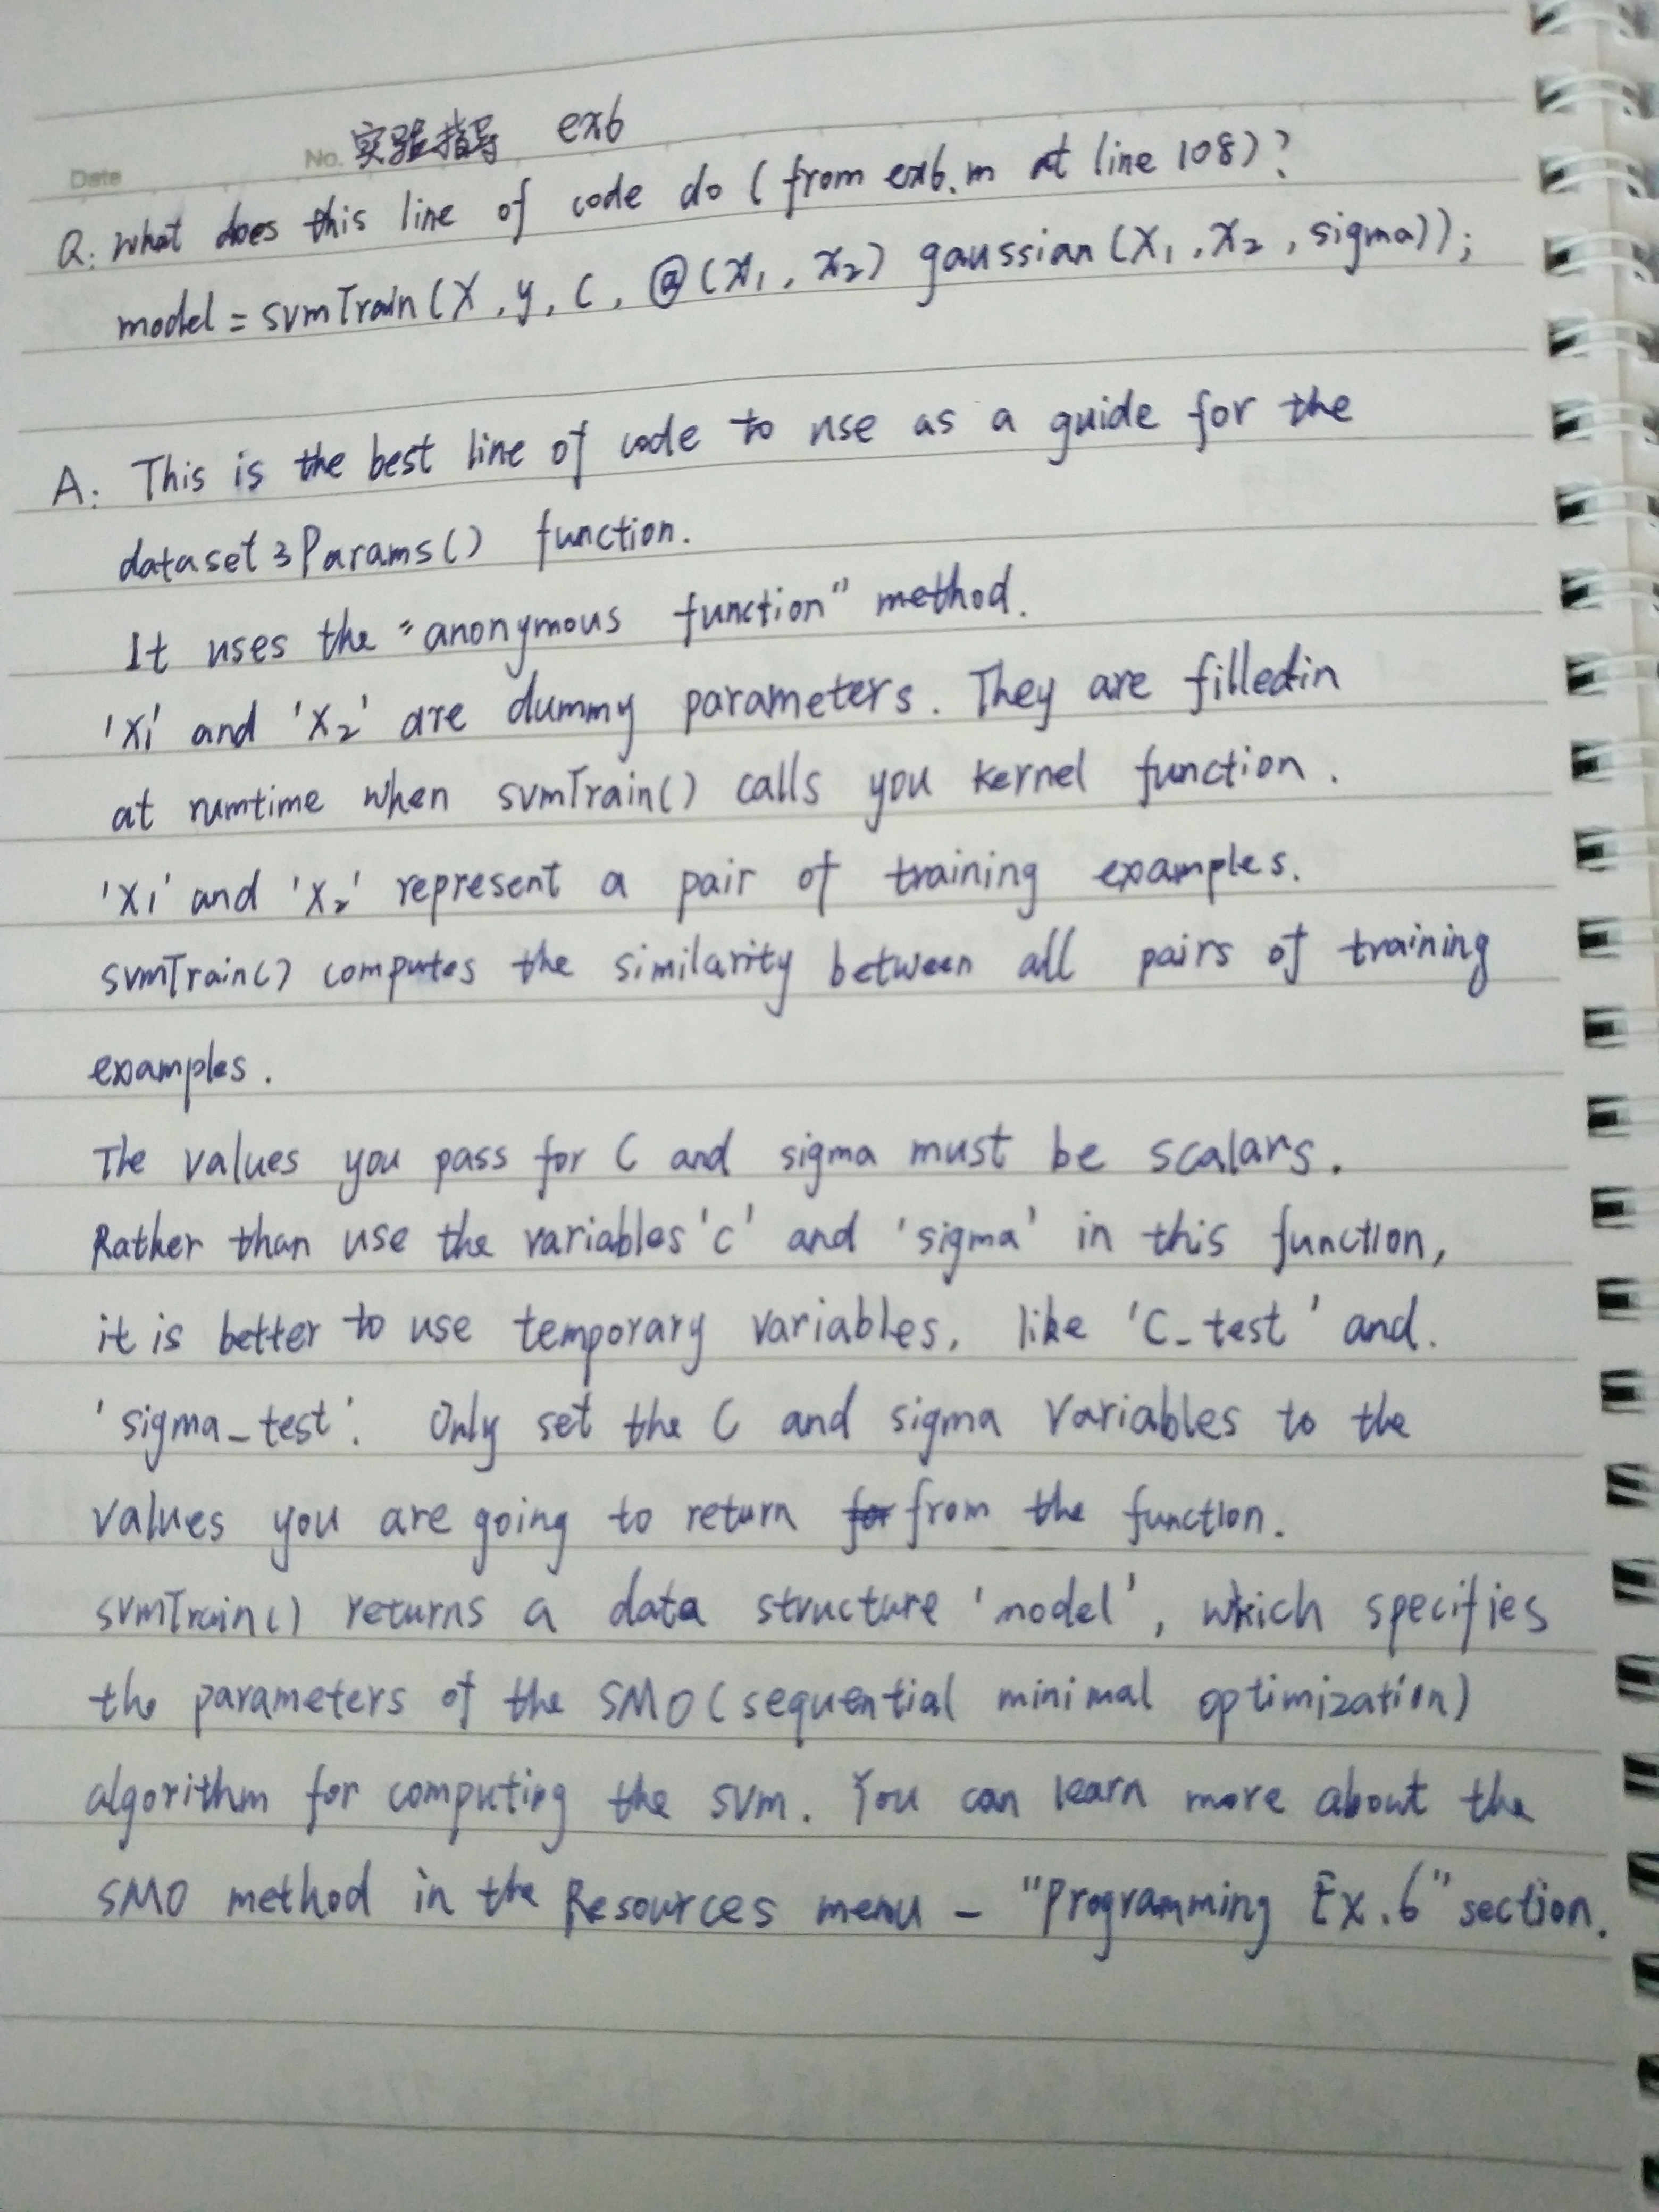 Date
No. 实验指导 ex6
Q: What does this line of code do (from ex6.m at line 108)?
model = svmTrain(X, y, C, @(x1, x2) gaussian(X1, X2, sigma));
A: This is the best line of code to use as a guide for the
dataset3Params() function.
It uses the "anonymous function" method.
'X1' and 'X2' are dummy parameters. They are filledin
at rumtime when svmTrain() calls you kernel function.
'X1' and 'X2' represent a pair of training examples.
svmTrain() computes the similarity between all pairs of training
examples.
The values you pass for C and sigma must be scalars.
Rather than use the variables 'C' and 'sigma' in this function,
it is better to use temporary variables, like 'C_test' and.
'sigma_test'. Only set the C and sigma variables to the
values you are going to return for from the function.
svmTrain() returns a data structure 'model', which specifies
the parameters of the SMO (sequential minimal optimization)
algorithm for computing the svm. You can learn more about the
SMO method in the Resources menu - "Programming Ex.6" section.